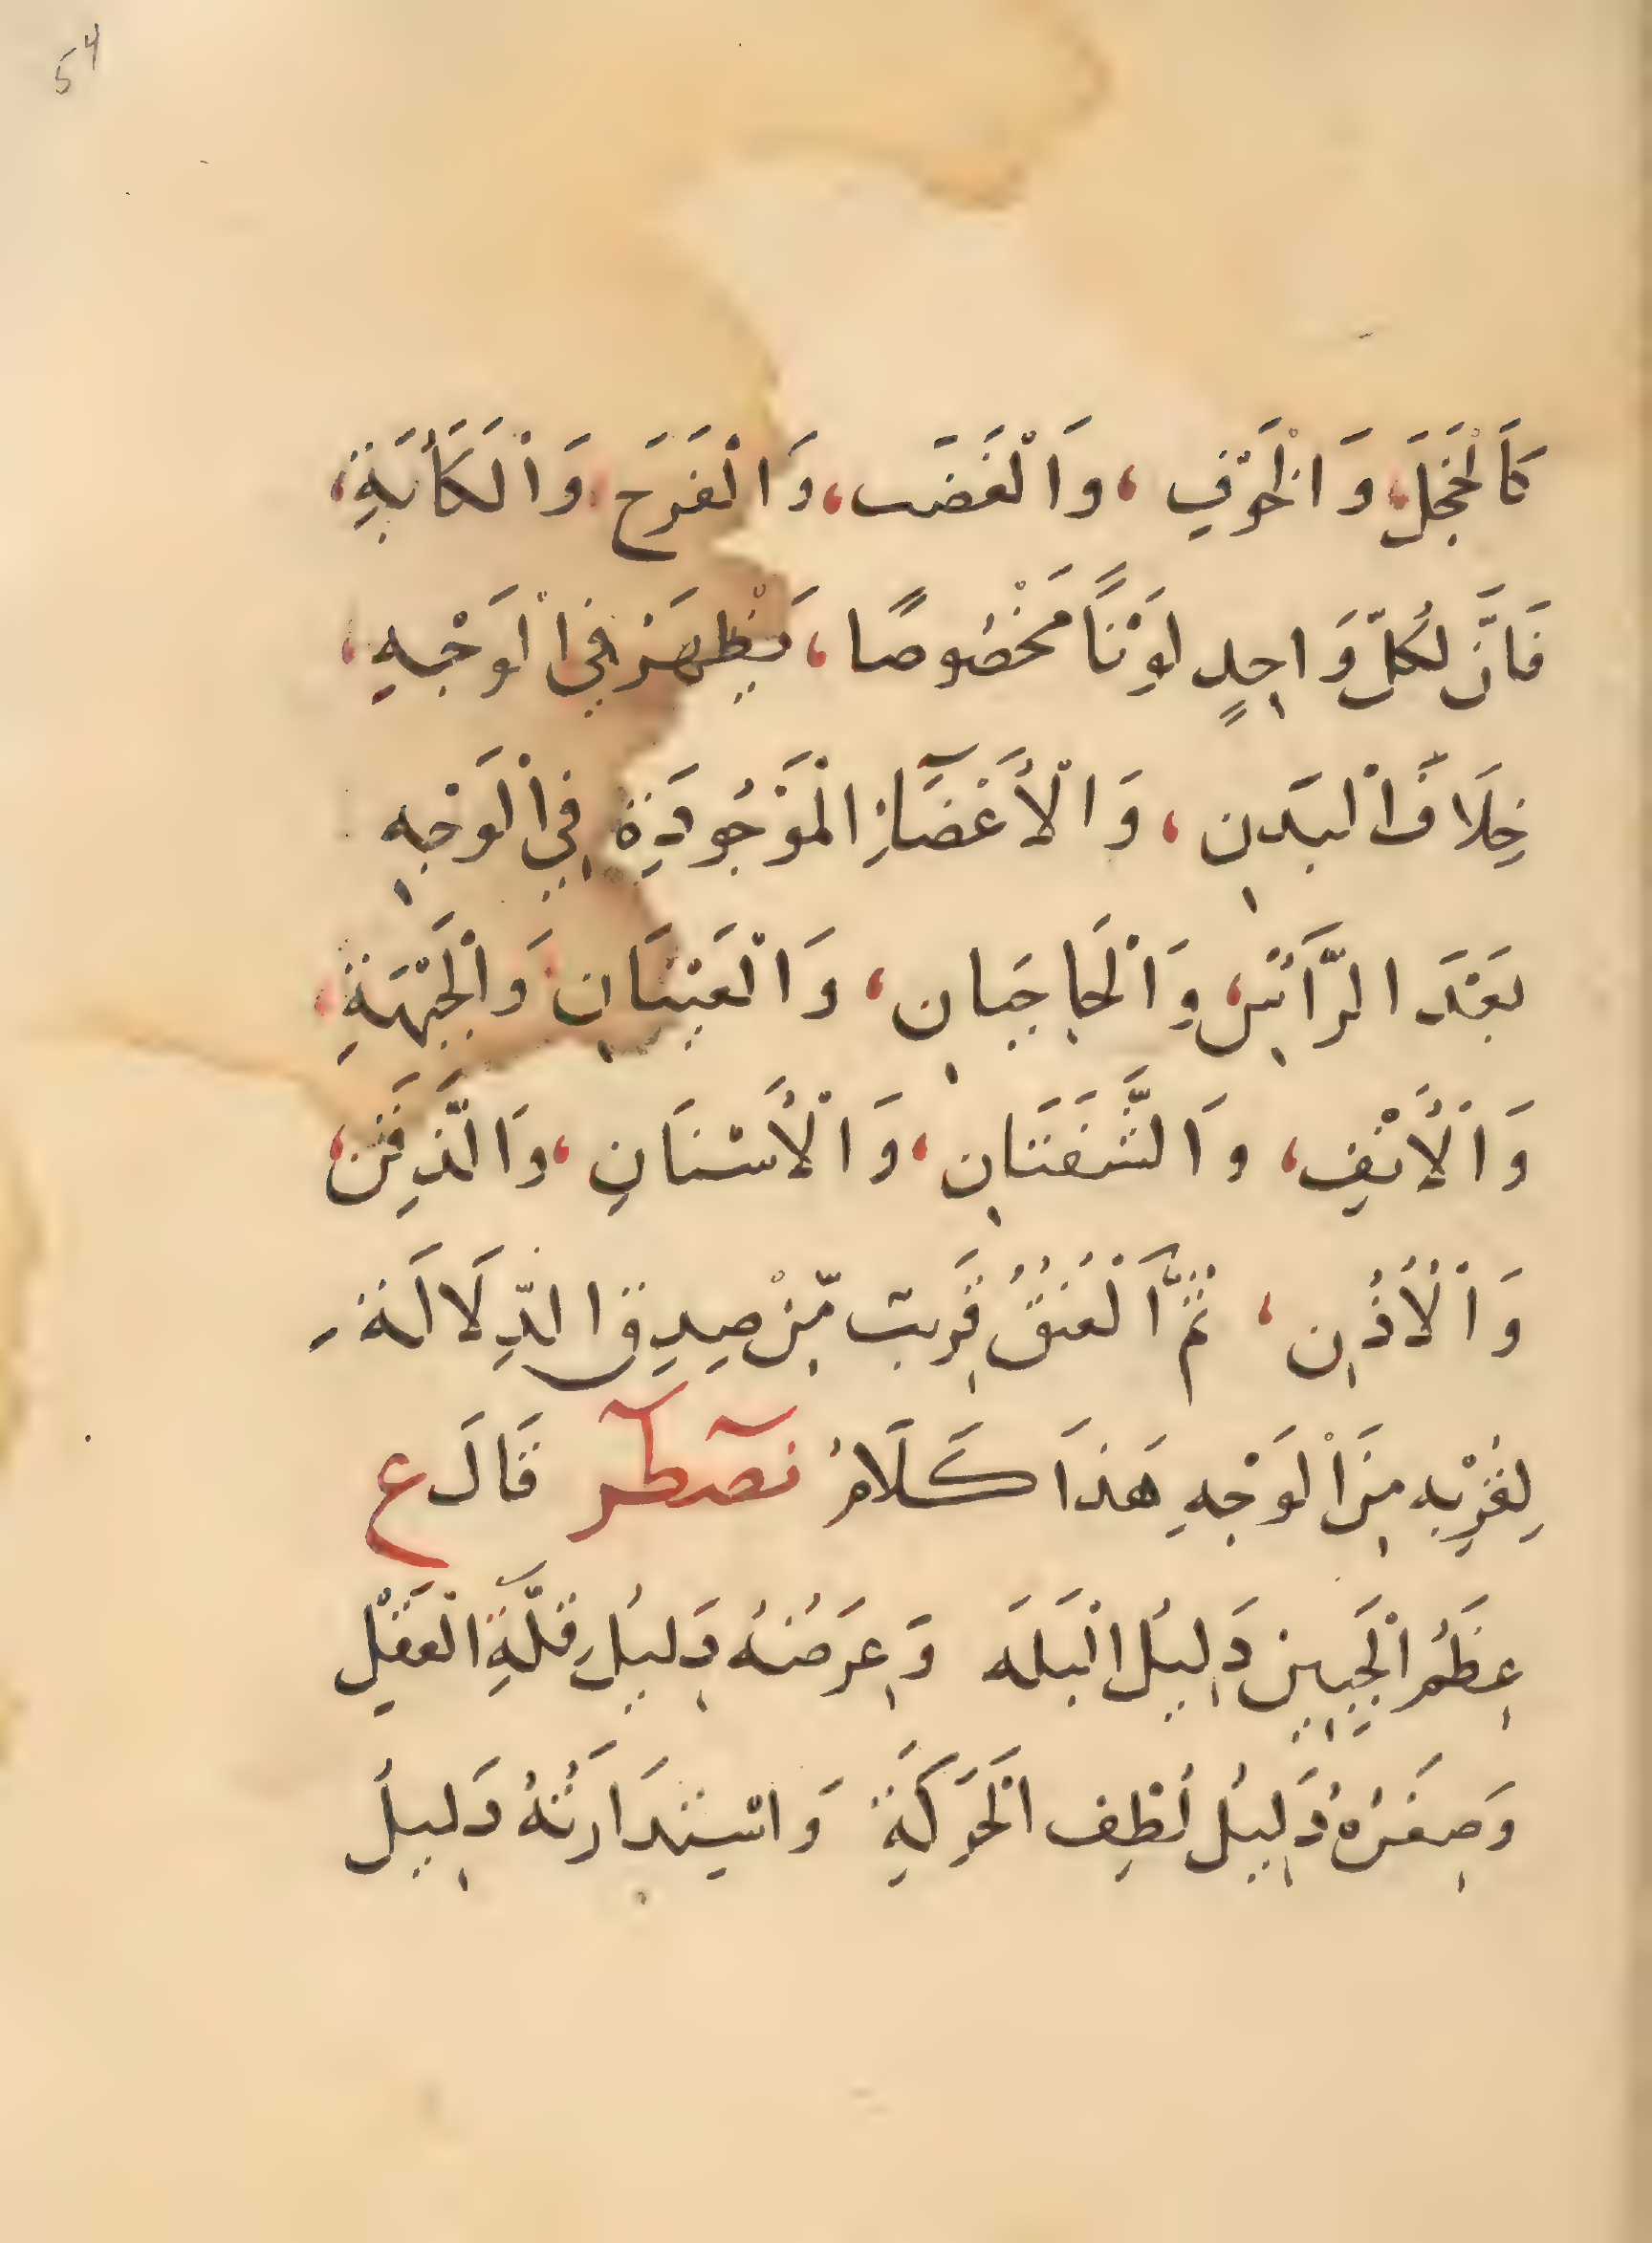 54
كَالْخَجَلَ، وَالْخَوْفِ، وَالْغَضَب، وَالْفَرَحِ، وَالْكَأبَةِ،
فَاِنَّ لِكُلِّ وَاحِدٍ لَوْنًا مَخْصُوصًا، يَظْهَرُ فِي الْوَجْهِ،
خِلَافَ الْبَدَنِ، وَالْأَعْضَآءِ الْمَوْجُودَةِ فِي الْوَجْهِ
بَعْدَ الرَّأْسِ، وَالْحَاجِبَانِ، وَالْعَيْنَانِ، وَالْجَبْهَةِ،
وَالْأَنْفِ، وَالشَّفَتَانِ، وَالْأَسْنَانِ، وَالذَّقَنِ،
وَالْأُذُنِ، ثُمَّ الْعُنُقُ قَرِيبٌ مِّنْ صِدِقِ الدِّلَالَةِ
لِقُرْبِهِ مِنَ الْوَجْهِ هَذَا كَلَامُ نصطر قَالَ ع
عِظَمُ الْجَبِينِ دَلِيلُ الْبَلَهَ وَعِرَضُهُ دَلِيلُ قِلَّةِ الْعَقْلِ
وَصِغَرُهُ دَلِيلُ لُطْفِ الْحَرَكَةِ وَاسْتِدَارَتُهُ دَلِيلُ